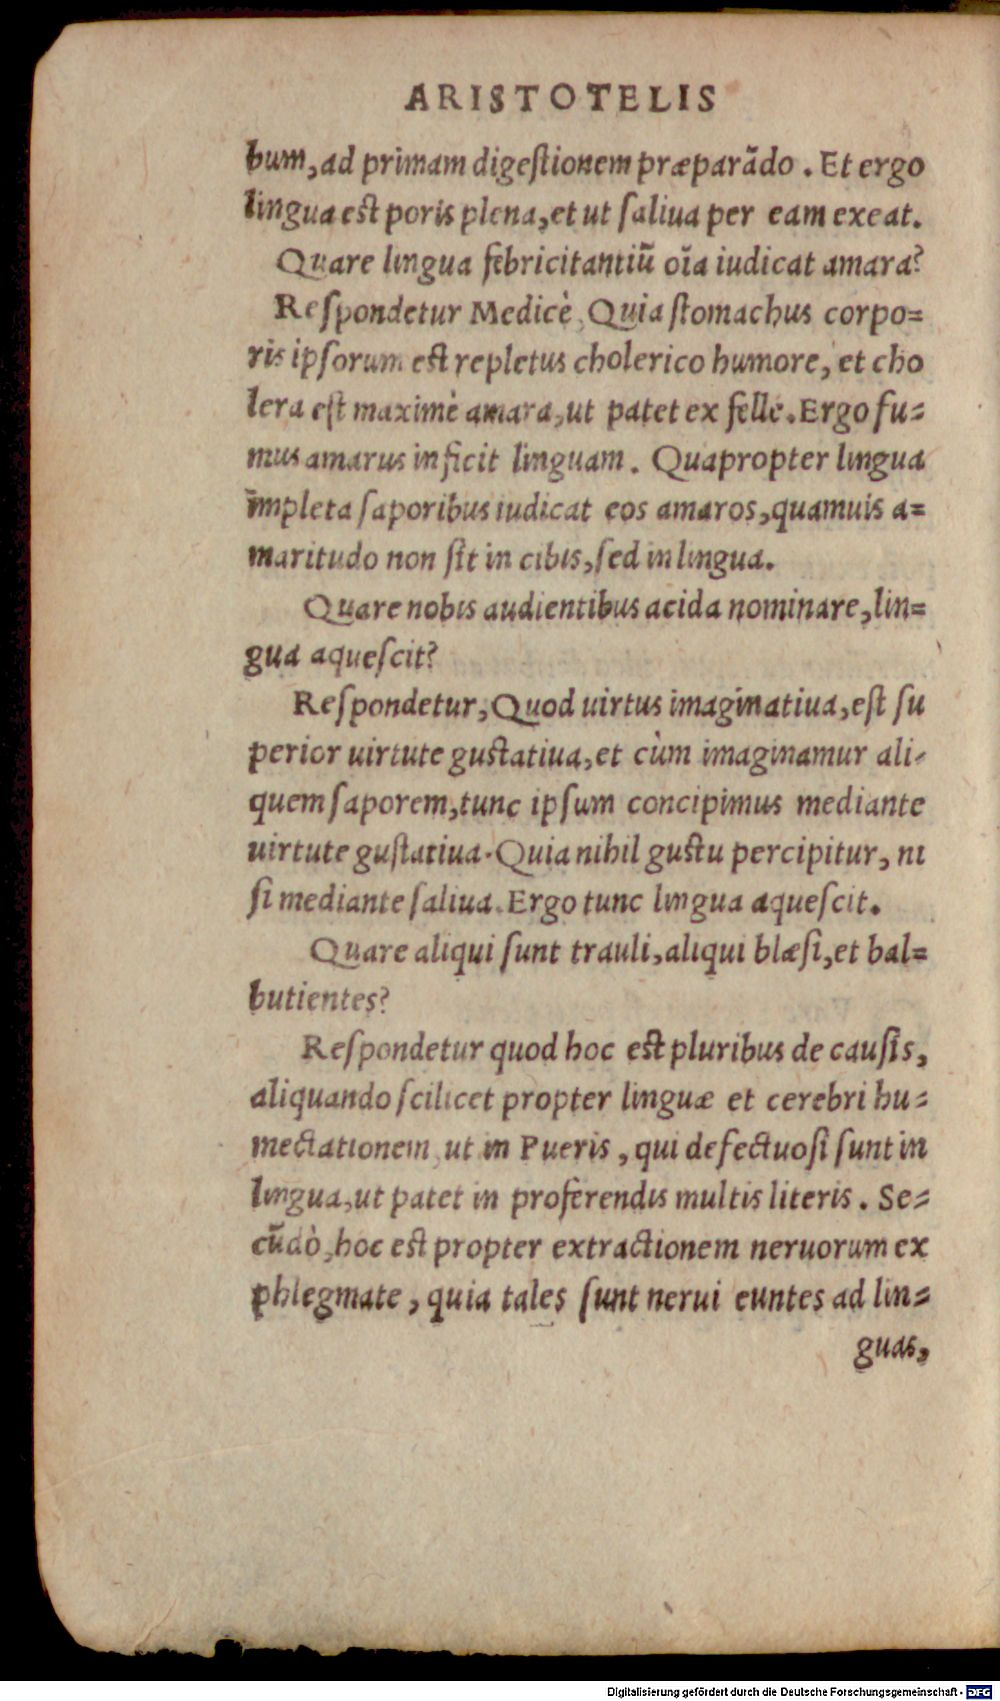 ARISTOTELIS
bum, ad primam digeſtionem præparādo. Et ergo
lingua eſt poris plena, et ut ſaliua per eam exeat.
Quare lingua febricitantiū oīa iudicat amara?
Reſpondetur Medicè, Quia ſtomachus corpo=
ris ipſorum eſt repletus cholerico humore, et cho
lera eſt maximè amara, ut patet ex felle. Ergo fu=
mus amarus inficit linguam. Quapropter lingua
impleta ſaporibus iudicat eos amaros, quamuis a=
maritudo non ſit in cibis, ſed in lingua.
Quare nobis audientibus acida nominare, lin=
gua aqueſcit?
Reſpondetur, Quod uirtus imaginatiua, eſt ſu
perior uirtute guſtatiua, et cùm imaginamur ali=
quem ſaporem, tunc ipſum concipimus mediante
uirtute guſtatiua. Quia nihil guſtu percipitur, ni
ſi mediante ſaliua. Ergo tunc lingua aqueſcit.
Quare aliqui ſunt trauli, aliqui blæſi, et bal=
butientes?
Reſpondetur quod hoc eſt pluribus de cauſis,
aliquando ſcilicet propter linguæ et cerebri hu=
mectationem, ut in Pueris, qui defectuoſi ſunt in
lingua, ut patet in proferendis multis literis. Se=
cūdò, hoc eſt propter extractionem neruorum ex
phlegmate, quia tales ſunt nerui euntes ad lin=
guas,
Digitalisierung gefördert durch die Deutsche Forschungsgemeinschaft - DFG